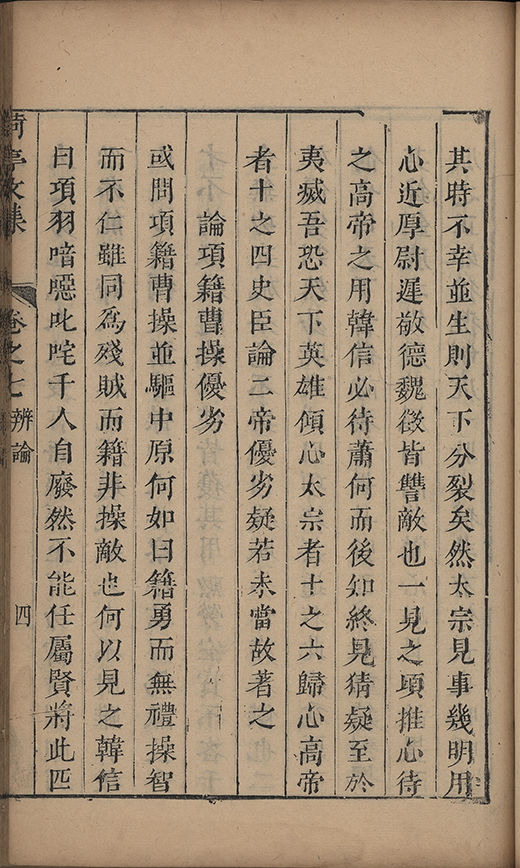 其時不幸並生則天下分裂矣然太宗見事幾明用
心近厚尉遲敬德魏徵皆讐敵也一見之頃推心待
之高帝之用韓信必待蕭何而後如終見猜疑至於
夷滅吾恐天下英雄傾心太宗者十之六歸心高帝
者十之四史臣論二帝優劣疑若未當故著之
論項籍曹操優劣
或問項籍曹操並驅中原何如曰籍勇而無禮操智
而不仁雖同為殘賊而籍非操敵也何以見之韓信
曰項羽喑噁叱咤千人自廢然不能任屬賢將此匹
荷亭文集 卷之七 辨論 四